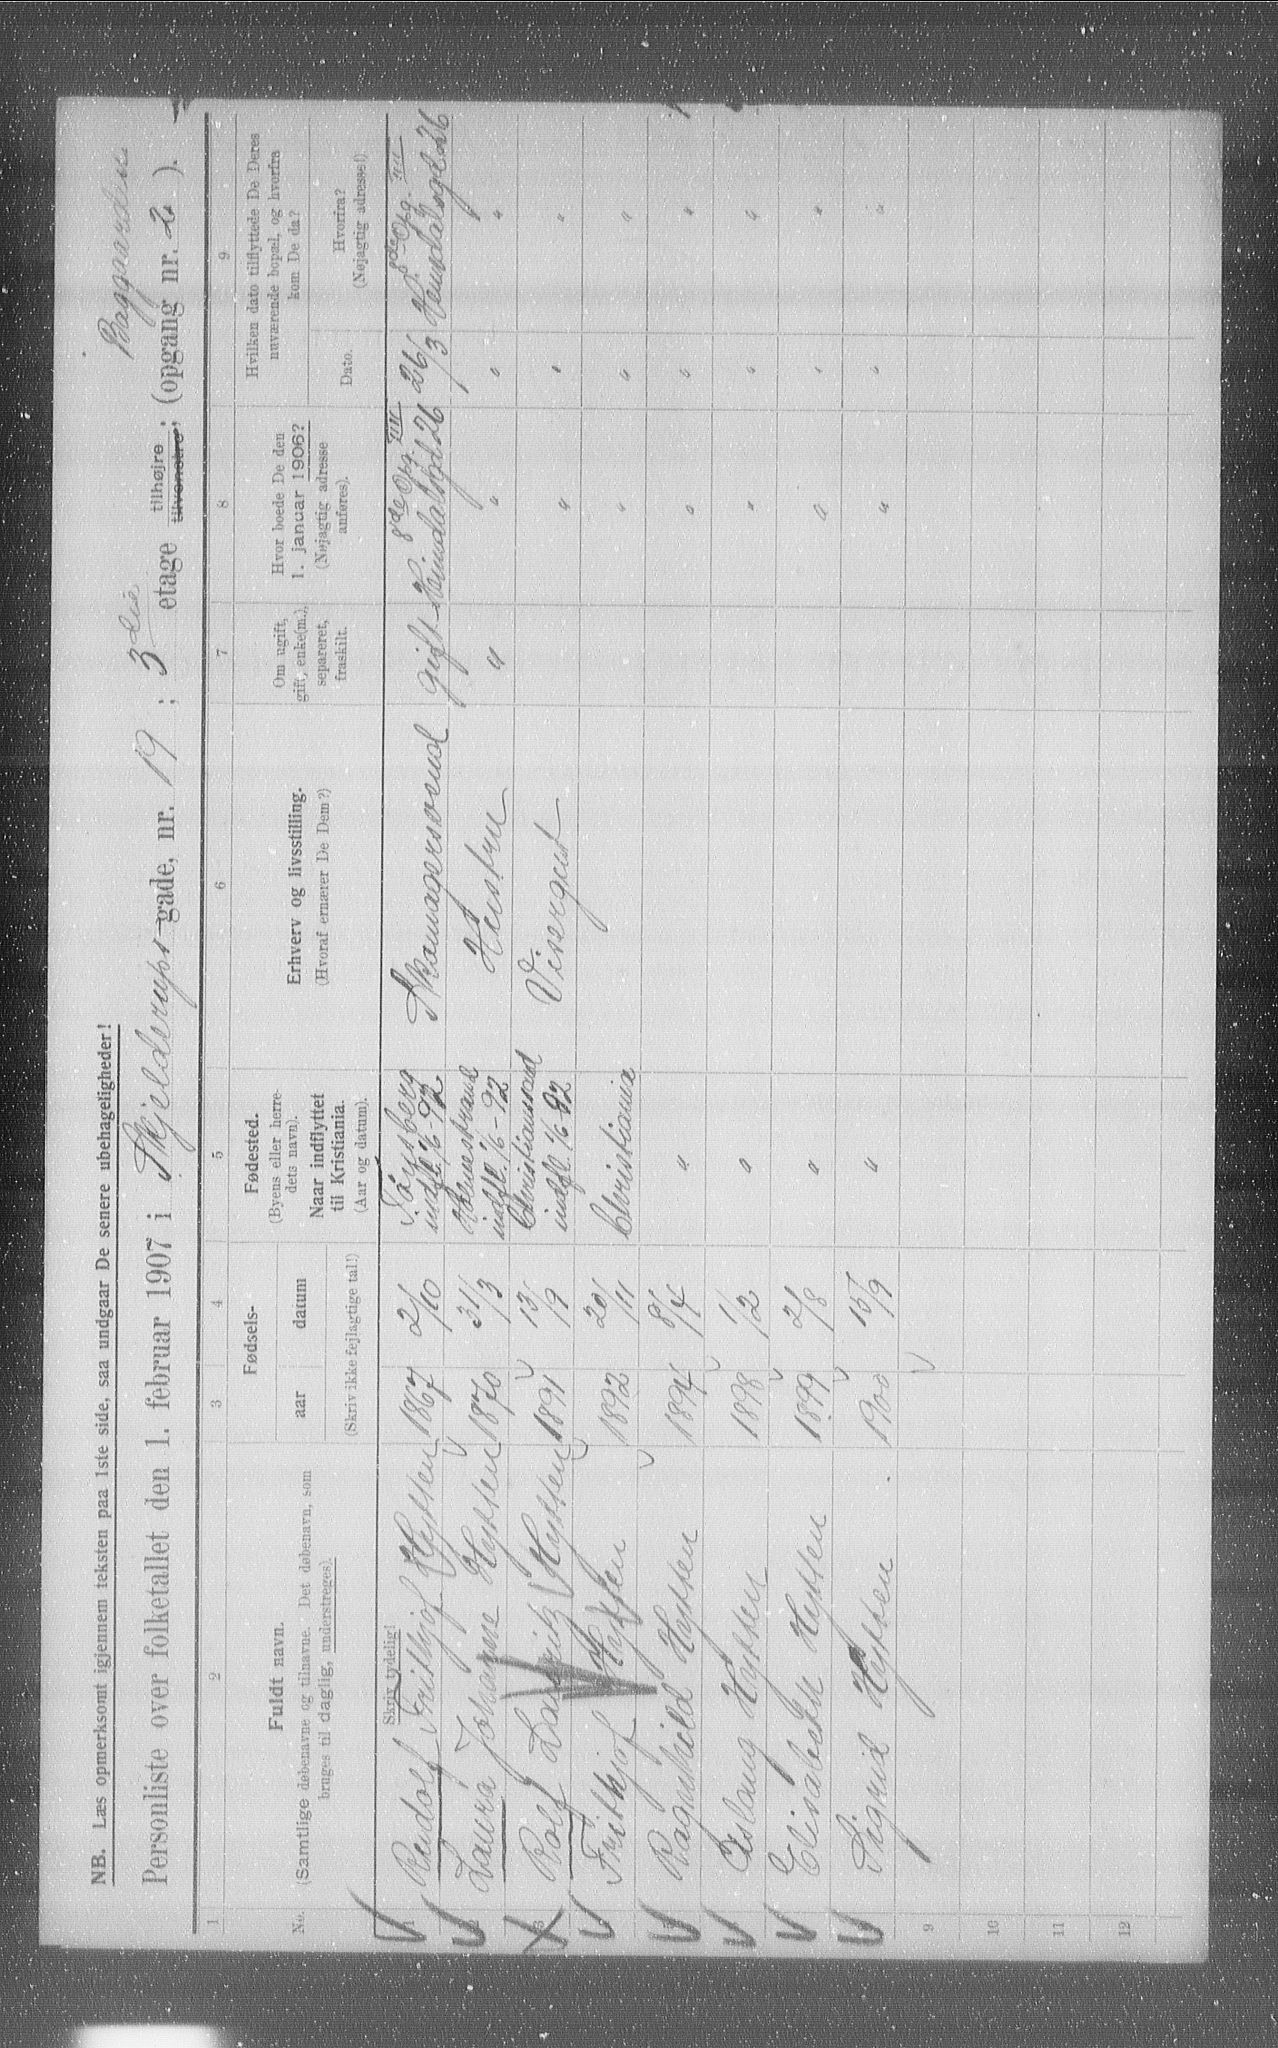 NB. Læs opmerksomt igjennem teksten paa 1ste side, saa undgaar De senere ubehageligheder!
Baggaarden
Personliste over folketallet den 1. februar 1907 i Skjelderups gade, nr. 19; 3die etage tilhøjre tilvenstre; (opgang nr. 2).
1 2 3 4 5 6 7 8 9
No. Fuldt navn. (Samtlige døbenavne og tilnavne. Det døbenavn, som bruges til daglig, understreges).
Fødsels- aar datum (Skriv ikke fejlagtige tal!)
Fødested. (Byens eller herredets navn). Naar indflyttet til Kristiania. (Aar og datum).
Erhverv og livsstilling. (Hvoraf ernærer De Dem?)
Om ugift, gift, enke(m.), separeret, fraskilt.
Hvor boede De den 1. januar 1906? (Nøjagtig adresse anføres).
Hvilken dato tilflyttede De Deres nuværende bopæl, og hvorfra kom De da?
Dato. Hvorfra? (Nøjagtig adresse!)
Skriv tydelig!
1 Rudolf Frithjof Hyssen 1867 2/10 Tønsberg indfl. 1/6-92 Skomagersvend gift 8de Opg. III Heimdalsgt 26 26/3 8de Opg. III Heimdalsgt. 26
2 Laura Johanne Hyssen 1870 31/3 Holmestrand indfl. 1/6-92 Hustru " " " "
3 Rolf Lauritz Hyssen 1891 13/9 Christianssand indfl. 1/6 92 Visergut " " "
4 Frithjof Hyssen 1892 20/11 Christiania " " "
5 Ragnhild Hyssen 1894 8/4 " " " "
6 Aslaug Hyssen 1898 1/2 " " " "
7 Elisabeth Hyssen 1899 2/8 " " " "
8 Sigrid Hyssen 1900 15/9 " " " "
9
10
11
12